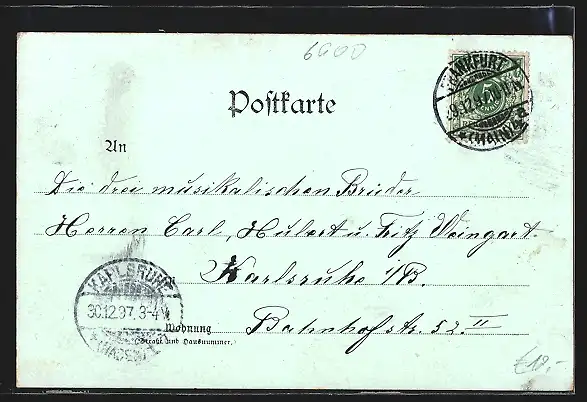 6900
FRANKFURT
29.12.97
(MAIN) 4 a
5
Postkarte
An
Die drei musikalischen Brüder
Herren Carl, Hubert u. Fritz Weingart
Karlsruhe i/B.
KARLSRUHE
30.12.97. 3-4 N
(BADEN)
Wohnung
(Straße und Hausnummer.)
Bahnhofstr. 52 II
£10.-